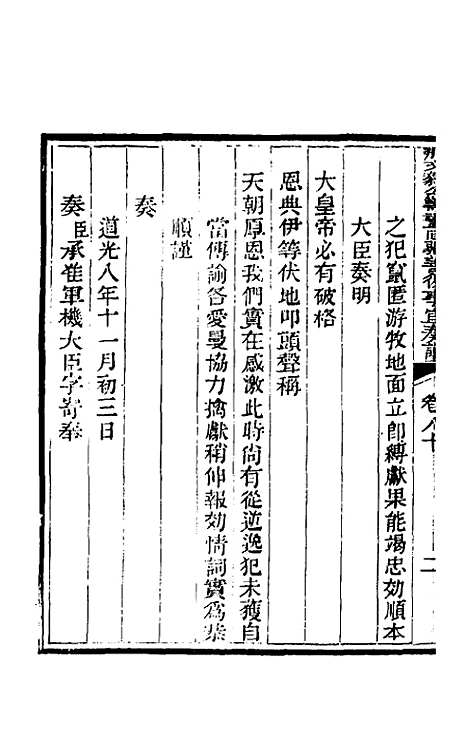 之犯竄匿游牧地面立卽縛獻果能竭忠効順本
大臣奏明
大皇帝必有破格
恩典伊等伏地叩頭聲稱
天朝厚恩我們實在感激此時尚有從逆逸犯未獲自
當傳諭各愛曼協力擒獻稍伸報効情詞實爲恭
順謹
奏
道光八年十一月初三日
奏臣承准軍機大臣字寄奉
卷八十
二